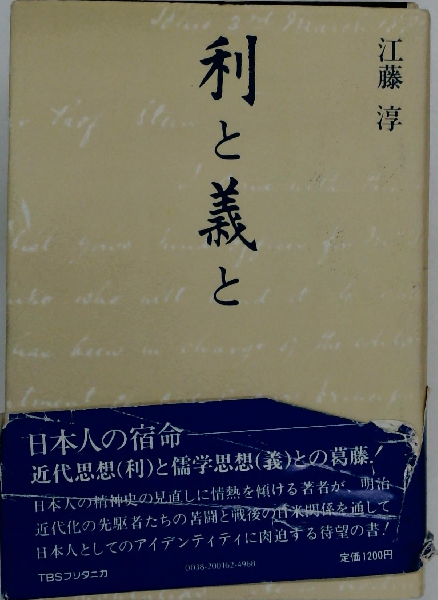 江藤 淳
利と義と
ine 3rd March
日本人の宿命
近代思想(利)と儒学思想(義)との葛藤!
日本人の精神史の見直しに情熱を傾ける著者が、明治
近代化の先駆者たちの苦闘と戦後の日米関係を通して
日本人としてのアイデンティティに肉迫する待望の書!
TBSブリタニカ
0038-200162-4960
定価1200円